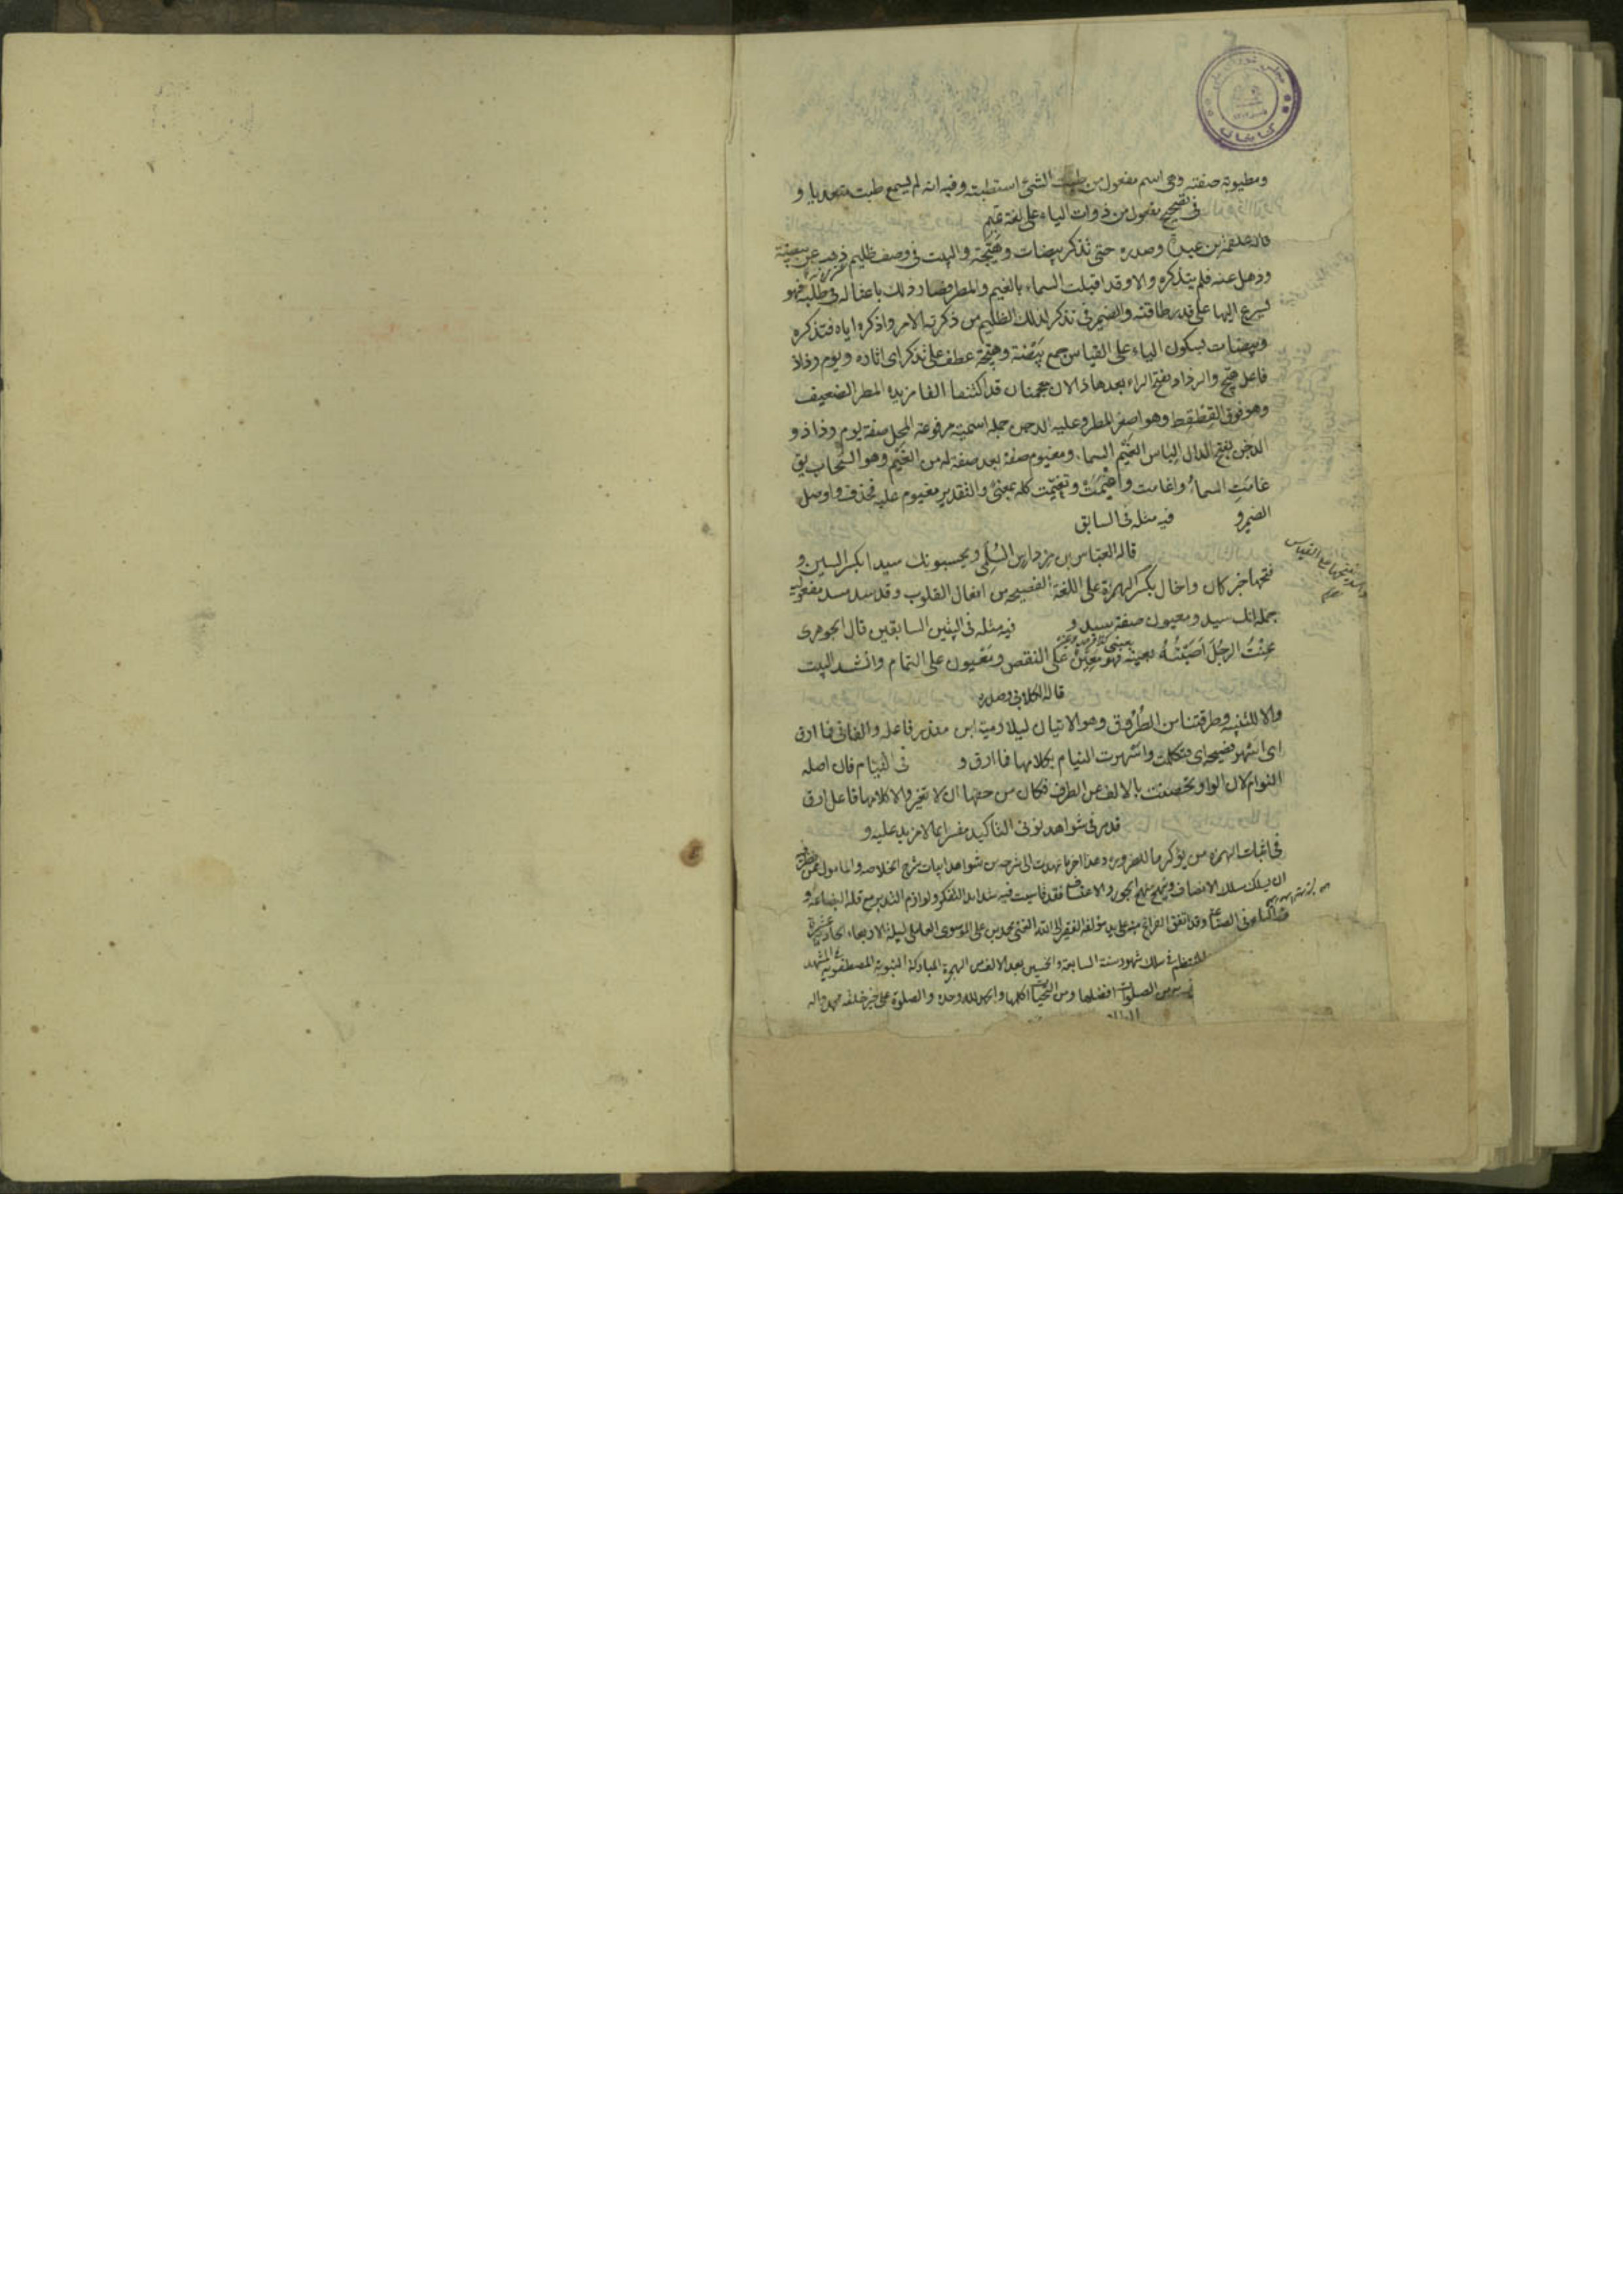 ومطيوبة صفته وهي اسم مفعول من طبت الشئ استطبته وفيه انه لم يسمع طبت متعديا و
في تصحيح مفعول من ذوات الياء على لغة تميم
قاله علقمة بن عبدة وصدره حتى تذكر بيضات وهيجه والبيت في وصف ظليم ذهب عن بيضته
وذهل عنه فلم يتذكره والا وقد اقبلت السماء بالغيم والمطر فصار ذلك باعثا له في طلبه فهو
يسرع اليها على قدر طاقته والضمير في تذكر لذلك الظليم من ذكرته الامر واذكره اياه فتذكره
وبيضات بسكون الياء على القياس جمع بيضة وهيجه عطف على تذكر اى اثاره ويوم رذاذ
فاعل هيج والرذاذ بفتح الراء بعدها ذالان معجمتان قد اكتنفا الفا مزيدة المطر الضعيف
وهو فوق القطقط وهو اصغر المطر وعليه الدجن جملة اسمية مرفوعة المحل صفة يوم رذاذ و
الدجن بفتح الدال الباس الغيم السماء ومغيوم صفة بعد صفة له من الغيم وهو السحاب يق
غامت السماء واغامت واغيمت وتغيمت كله بمعنى والتقدير مغيوم عليه فحذف واوصل
الضمير و فيه مثله في السابق
قاله العباس بن مرداس السلمى ويحسبونك سيدا بكسر السين و
فتحها خبر كان واخال بكسر الهمزة على اللغة الفصيحه من افعال القلوب وقد سد مسد مفعوليه
جملة انك سيد ومعيون صفة سيد و فيه مثله في البيتين السابقين قال الجوهرى
عنت الرجل اصبته بعينى فهو معين على النقص ومعيون على التمام وانشد البيت
قاله الكلابى وصدره
والا للتنبيه وطرقتنا من الطروق وهو الاتيان ليلا ومية ابن منذر فاعله والفا في فما ارق
النوام لان الواو تحصنت بالالف عن الطرف فكان من حقها ان لا تغير والا كلامها فاعل ارق
قد مر في شواهد نونى التاكيد مفسرا بما لا مزيد عليه و
في اثبات الهمزة من يؤكرما للضرورة وهذا اخر ما نهدت الى شرحه من شواهد ابيات شرح الخلاصه والمامول ممن
ان يسلك مسلك الانصاف فقد قاسيت فيه شدايد التفكر ولوازم التدبر مع قلة البضاعة و
وقد اتفق الفراغ منه على يد مؤلفه الفقير الى الله الغنى محمد بن على الموسوى العاملى ليلة الاربعاء
المنتظم في سلك شهور سنة السابعة والخمسين بعد الالف من الهجرة المباركة النبوية المصطفوية
من الصلوات افضلها ومن التحيات اكملها والحمد لله وحده والصلوة على خير خلقه محمد واله